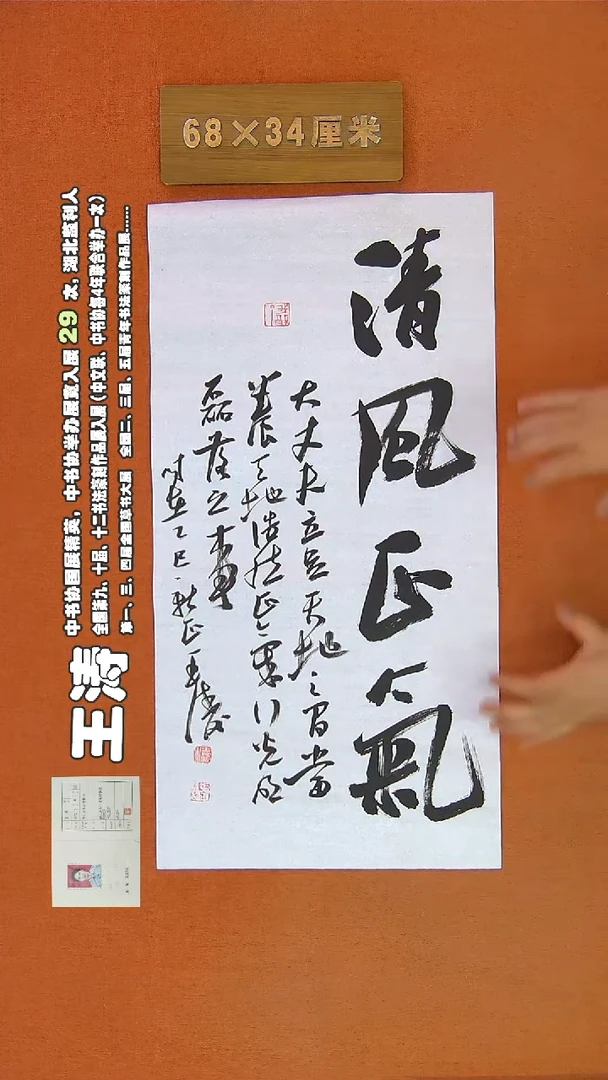 68×34厘米
清风正氣
大丈夫立足天地之间当
养天地浩然正气行光明
磊落之事
时在乙巳秋正 王涛
王涛
中书协国展精英，中书协举办展赛入展29次，湖北监利人
全国第九、十届、十二书法篆刻作品展入展（中文联、中书协每4年联合举办一次）
第一、三、四届全国草书大展 全国二、三届、五届青年书法篆刻作品展......